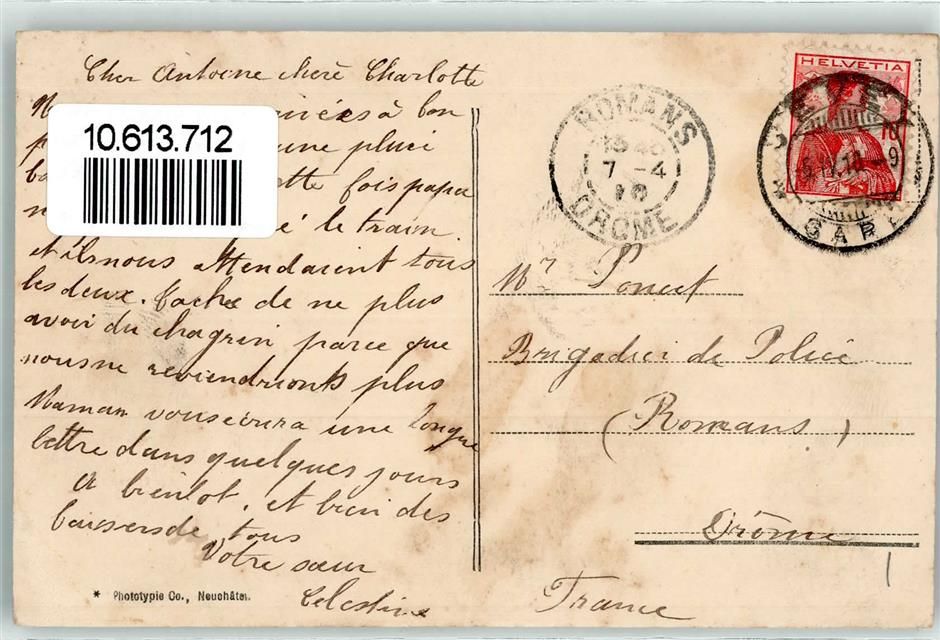 Cher Antoine chère Charlotte
à bon
une pluie
fois papa
le train
et ils nous attendaient tous
les deux. Tache de ne plus
avoir du chagrin parce que
nous ne reviendrionts plus
Maman vous ecrira une longue
lettre dans quelques jours
A bientot, et bien des
baisers de tous
Votre sœur
Celestine
* Phototypie Co., Neuchâtel.
10.613.712
ROMANS
7-4
10
DROME
HELVETIA
GARE
Mr Poncet
Brigadier de Police
(Romans)
Drôme
France